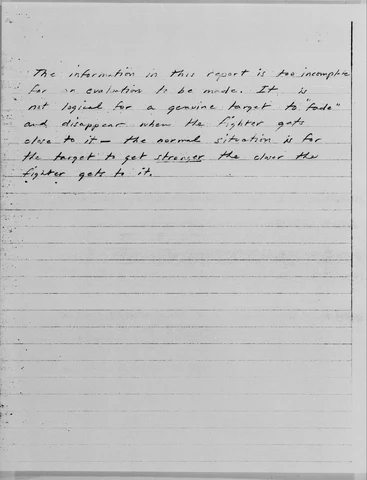 The information in this report is too incomplete
for an evaluation to be made. It is
not logical for a genuine target to "fade"
and disappear when the fighter gets
close to it — the normal situation is for
the target to get stronger the closer the
fighter gets to it.